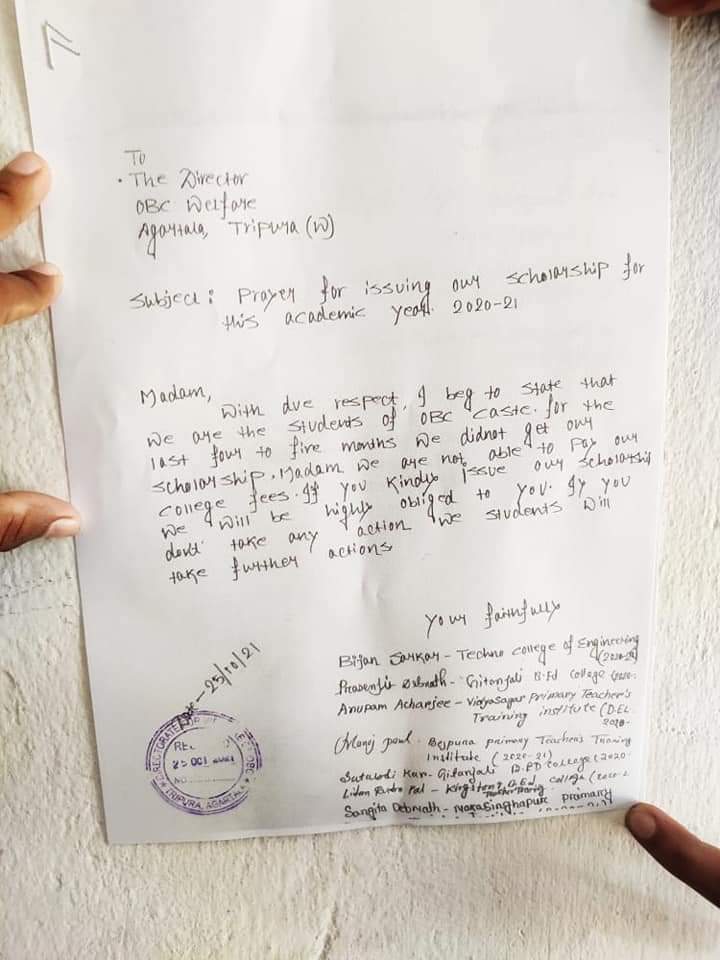 To
The Director
OBC Welfare
Agartala, Tripura (W)
Subject: Prayer for issuing our scholarship for
this academic year. 2020-21
Madam,
With due respect, I beg to state that
we are the students of OBC caste. for the
last four to five months we didnot get our
scholarship. Madam we are not able to pay our
college fees. If you kindly issue our scholarship
we will be highly obliged to you. If you
dont take any action we students will
take further actions
Your faithfully
Bijan Sarkar - Techno College of Engineering
(2020-21)
Prasenjit Debnath - Gitanjali B.Ed College (2020-
Anupam Acharjee - Vidyasagar Primary Teacher's
Training institute (D.EL
2020-
Manoj paul - primary Teacher's Training
Institute (2020-21)
Kar - Gitanjali College (2020-
Pal - College (2020-2
Sangita Debnath - Narasinghapur primary
25/10/21
DIRECTORATE
25 OCT 2021
NO.
TRIPURA, AGARTALA